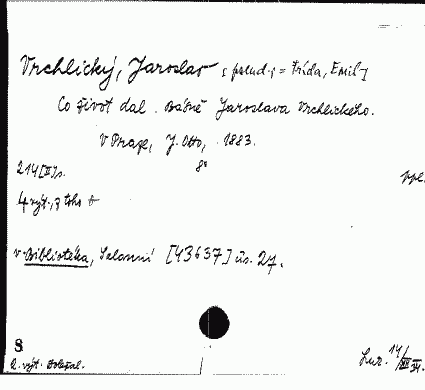 Vrchlický, Jaroslav [pseud.; = Frída, Emil]
Co život dal. Básně Jaroslava Vrchlického.
V Praze, J. Otto, 1883.
8°
214 [II] s.
4 výt.,
v Bibliotéka, Salonní [43637] čís. 27.
8
2. výt. Doležal.